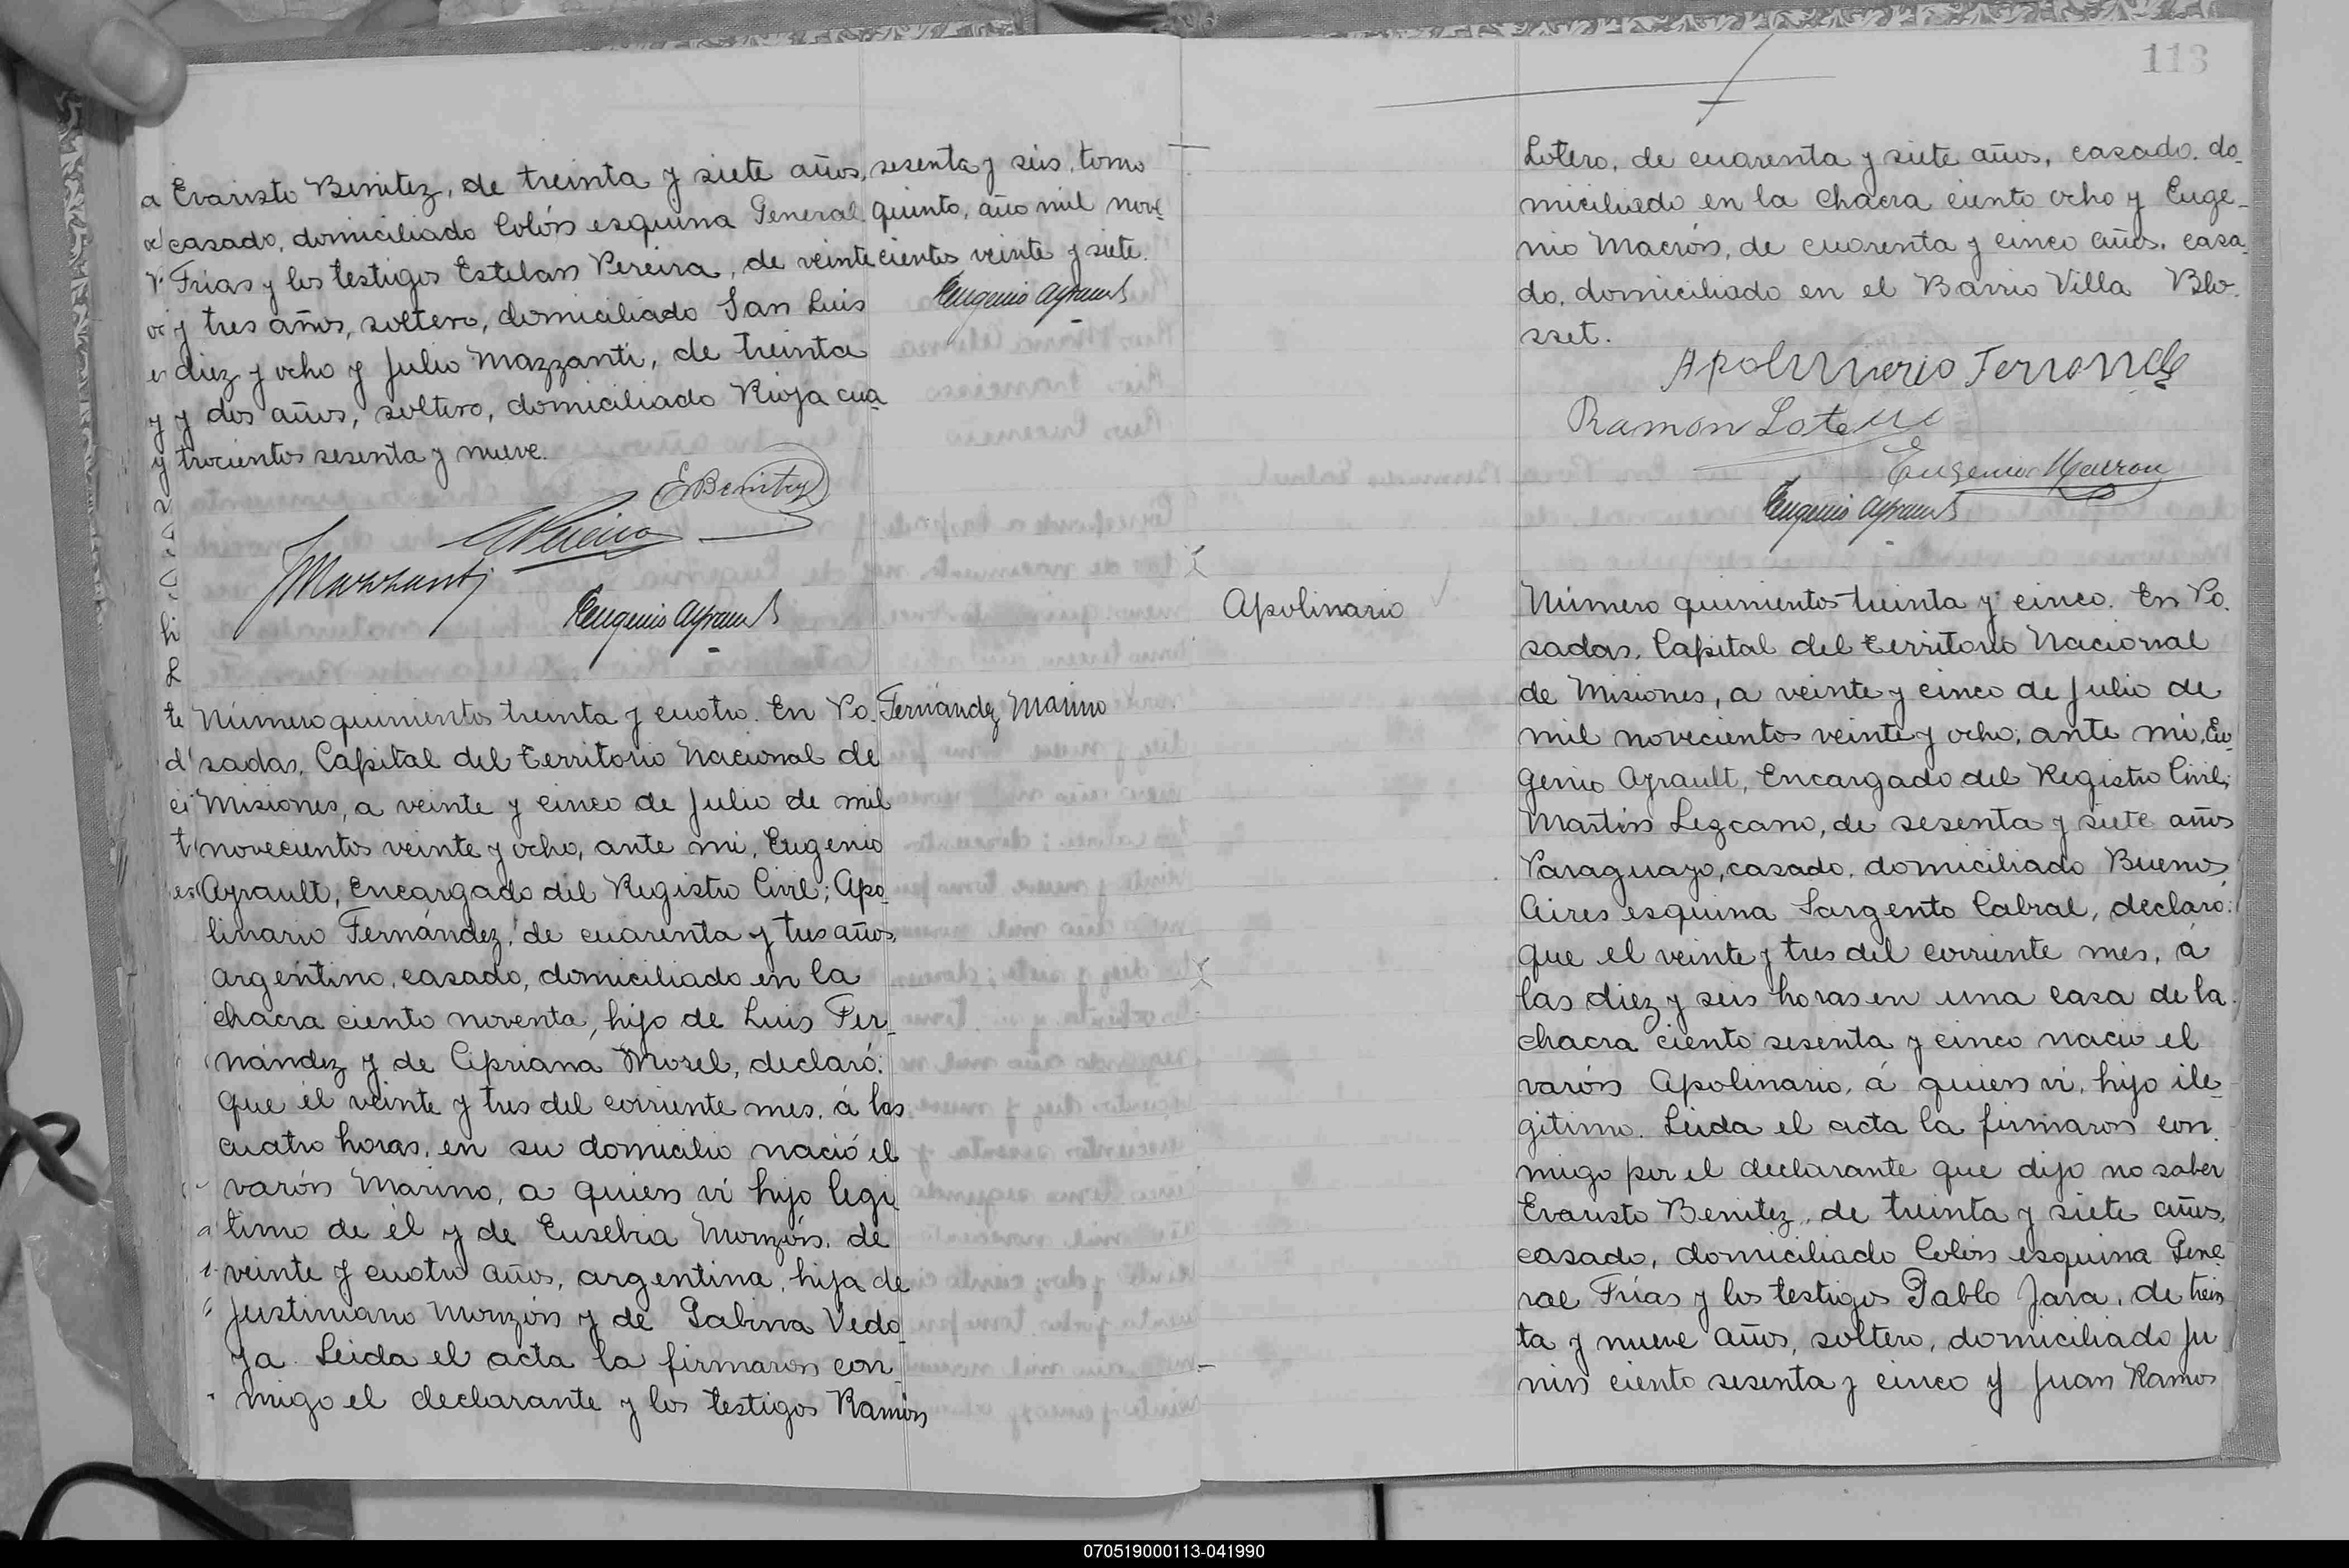 a Evaristo Benitez, de treinta y siete años,
casado, domiciliado Colón esquina General
Frías y los testigos Estelan Pereira, de veinte
y tres años, soltero, domiciliado San Luis
diez y ocho y Julio Mazzanti, de treinta
y dos años, soltero, domiciliado Rioja cua
trocientos sesenta y nueve.
sesenta y seis, tomo
quinto, año mil nove
cientos veinte y siete.
Eugenio Ayrault
E Benitez
EPereira
JMazzanti
Eugenio Ayrault
Fernández Marino
Número quinientos treinta y cuatro. En Po
sadas, Capital del Territorio Nacional de
Misiones, a veinte y cinco de Julio de mil
novecientos veinte y ocho, ante mi, Eugenio
Ayrault, Encargado del Registro Civil; Apo
linario Fernández, de cuarenta y tres años,
argentino, casado, domiciliado en la
chacra ciento noventa, hijo de Luis Fer
nández y de Cipriana Mosel, declaró:
Que el veinte y tres del corriente mes, á las
cuatro horas, en su domicilio nació el
varón Marino, a quien ví hijo legi
timo de él y de Eusebia Monzón, de
veinte y cuatro años, argentina, hija de
Justiniano Monzón y de Sabina Vedo
ya. Leida el acta la firmaron con
migo el declarante y los testigos Ramón
113
Lotero, de cuarenta y siete años, casado, do
miciliado en la chacra ciento ocho y Euge
nio Macrón, de cuarenta y cinco años, casa
do, domiciliado en el Barrio Villa Blo
sset.
Apolinario Fernande
Ramon Lotero
Eugenio Macron
Eugenio Ayrault
Apolinario
Número quinientos treinta y cinco. En Po
sadas, Capital del Territorio Nacional
de Misiones, a veinte y cinco de Julio de
mil novecientos veinte y ocho, ante mi, Eu
genio Ayrault, Encargado del Registro Civil;
Martin Lezcano, de sesenta y siete años
Paraguayo, casado, domiciliado Buenos
Aires esquina Sargento Cabral, declaró:
Que el veinte y tres del corriente mes, á
las diez y seis horas en una casa de la
chacra ciento sesenta y cinco nació el
varón Apolinario, á quien ví, hijo ile
gitimo. Leida el acta la firmaron con
migo por el declarante que dijo no saber
Evaristo Benitez, de treinta y siete años,
casado, domiciliado Colón esquina Gene
ral Frías y los testigos Pablo Jara, de trein
ta y nueve años, soltero, domiciliado Ju
nin ciento sesenta y cinco y Juan Ramos
070519000113-041990